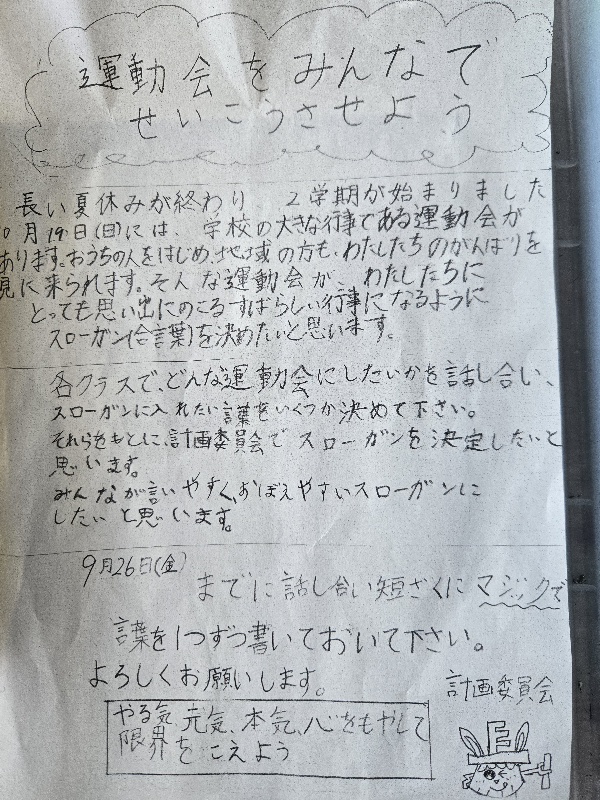 運動会をみんなで
せいこうさせよう
長い夏休みが終わり、2学期が始まりました
0月19日(日)には、学校の大きな行事である運動会が
あります。おうちの人をはじめ、地域の方も、わたしたちのがんばりを
見に来られます。そんな運動会が、わたしたちに
とっても思い出にのこるすばらしい行事になるように
スローガン(合言葉)を決めたいと思います。
各クラスで、どんな運動会にしたいかを話し合い、
スローガンに入れたい言葉をいくつか決めて下さい。
それらをもとに、計画委員会でスローガンを決定したいと
思います。
みんなが言いやすく、おぼえやすいスローガンに
したいと思います。
9月26日(金)
までに話し合い短ざくにマジックで
言葉を1つずつ書いておいて下さい。
よろしくお願いします。
計画委員会
やる気、元気、本気、心をもやして
限界をこえよう
E